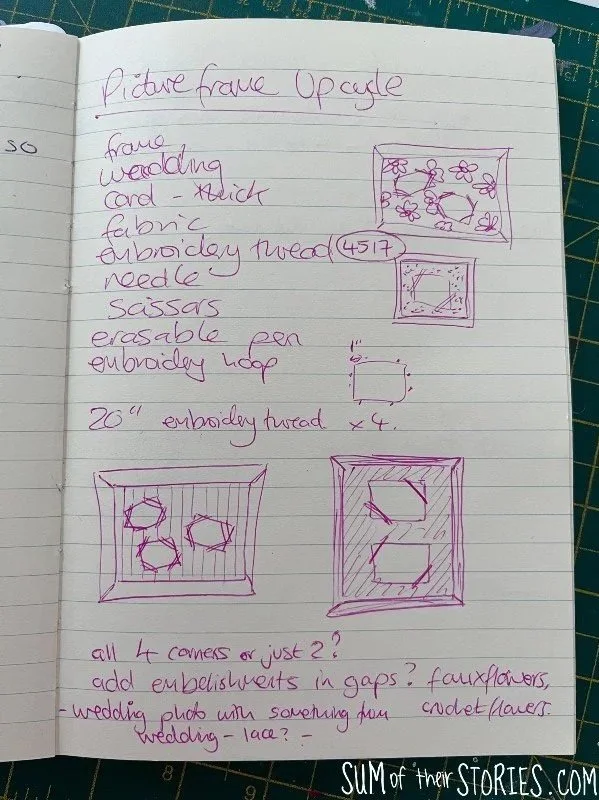 so
Picture frame Upcycle
frame
wedding
card - thick
fabric
embroidery thread 4517
needle
scissars
erasable pen
embroidery hoop
1"
20" embroidery thread x 4.
all 4 corners or just 2?
add embelishments in gaps? fauxflowers,
- wedding photo with something from crochet flowers.
wedding - lace? -
8 9
SUM of their STORIES.COM